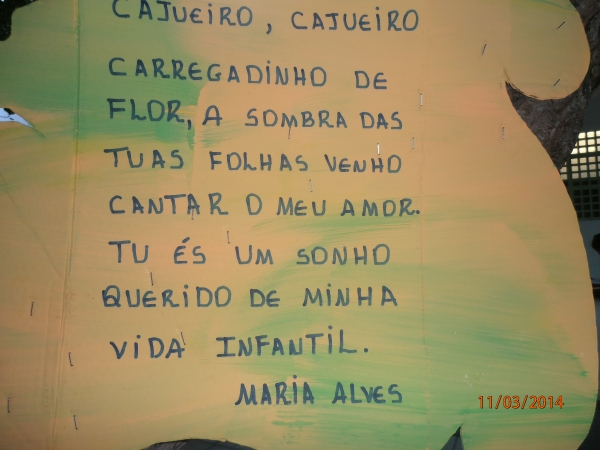 CAJUEIRO, CAJUEIRO
CARREGADINHO DE
FLOR, A SOMBRA DAS
TUAS FOLHAS VENHO
CANTAR O MEU AMOR.
TU ÉS UM SONHO
QUERIDO DE MINHA
VIDA INFANTIL.
MARIA ALVES
11/03/2014